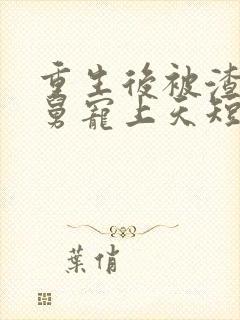 重生後被渣
舅寵上天短
葉俏